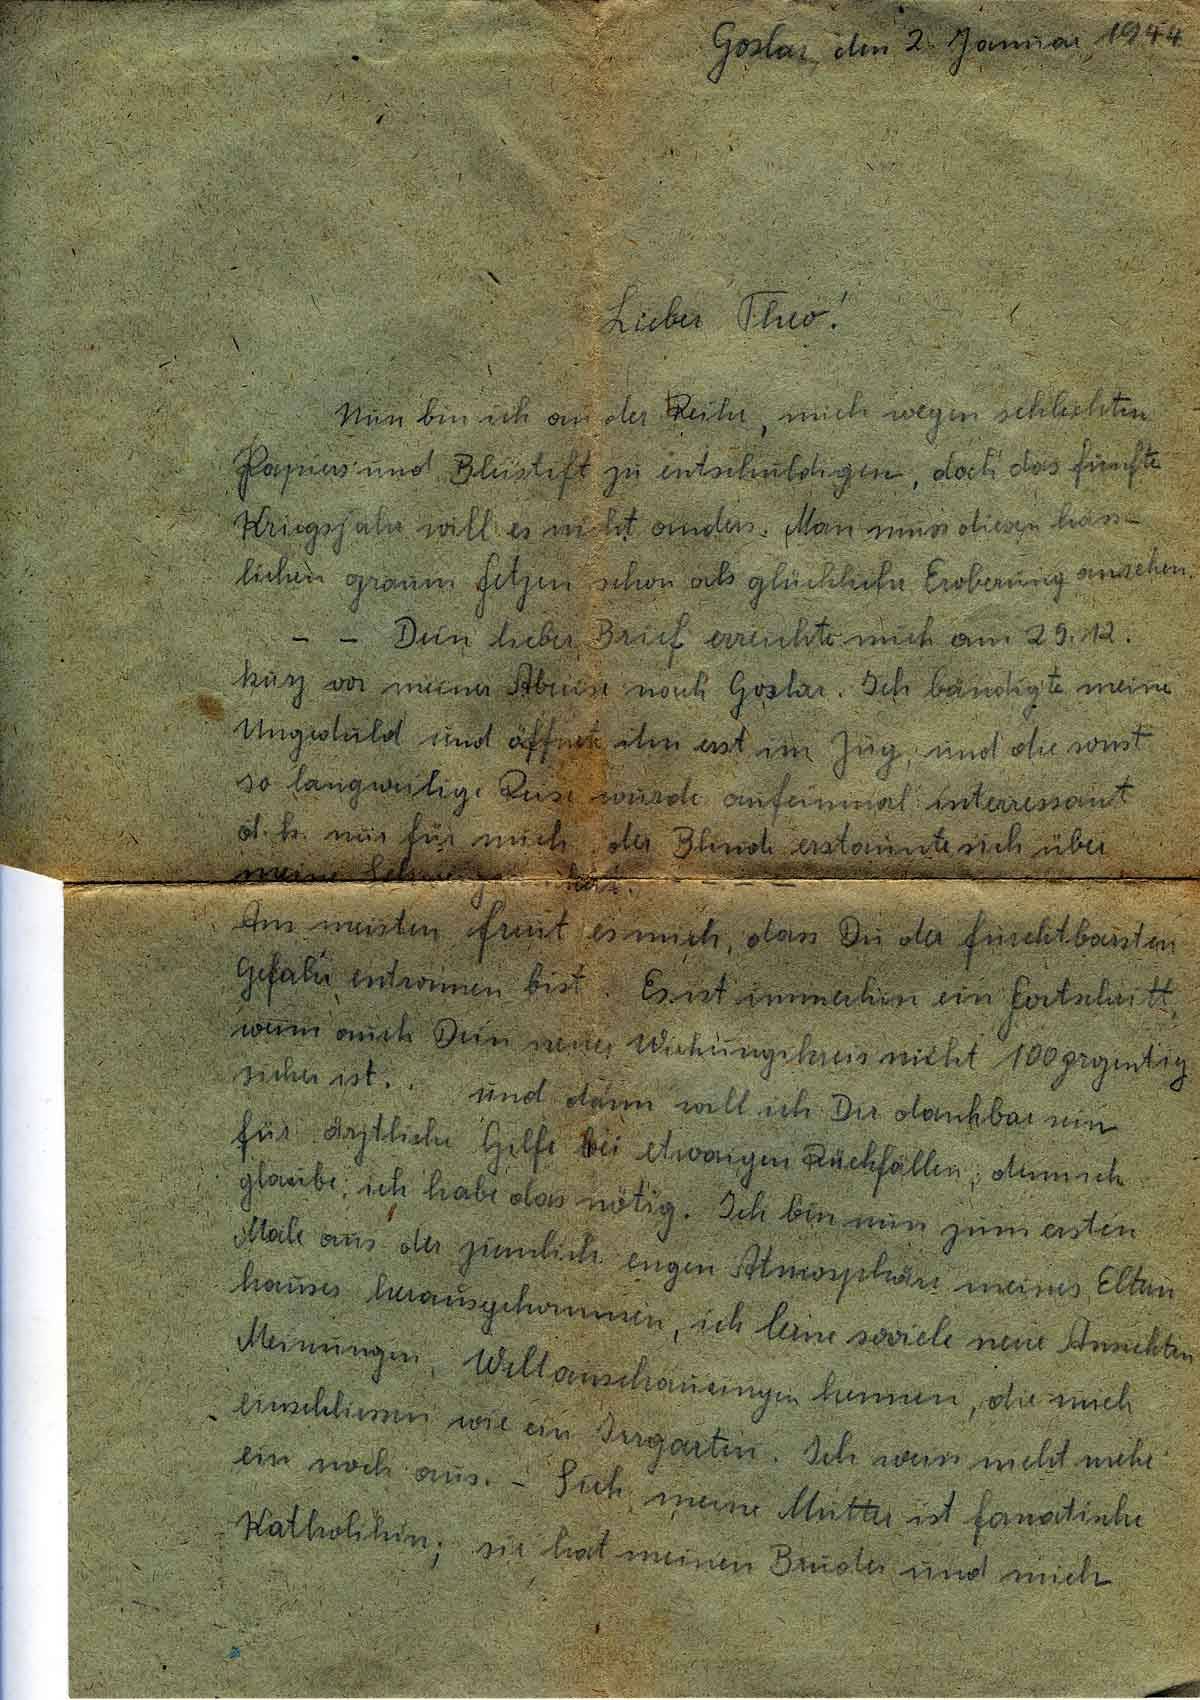 Goslar, den 2. Januar 1944
Lieber Theo!
Nun bin ich an der Reihe, mich wegen schlechten
Papiers und Bleistift zu entschuldigen, doch das fünfte
Kriegsjahr will es nicht anders. Man muss diesen häss-
lichen grauen Fetzen schon als glückliche Eroberung ansehen.
– – Dein lieber Brief erreichte mich am 29.12.
kurz vor meiner Abreise nach Goslar. Ich bändigte meine
Ungeduld und öffnete ihn erst im Zug, und die sonst
so langweilige Reise wurde aufeinmal interressant
d.h. nur für mich, der Blinde erstaunte sich über
meine
Am meisten freut es mich, dass Du der furchtbarsten
Gefahr entronnen bist. Es ist immerhin ein Fortschritt,
wenn auch Dein neuer Wirkungskreis nicht 100 prozentig
sicher ist. . und dann will ich Dir dankbar sein
für ärztliche Hilfe bei etwaigen Rückfällen, denn ich
glaube, ich habe das nötig. Ich bin nun zum ersten
Male aus der ziemlich engen Atmosphäre meines Eltern
hauses herausgekommen, ich lerne soviele neue Ansichten
Meinungen, Weltanschauungen kennen, die mich
einschliessen wie ein Irrgarten. Ich weiss nicht mehr
ein noch aus. – Sieh, meine Mutter ist fanatische
Katholikin; sie hat meinen Bruder und mich